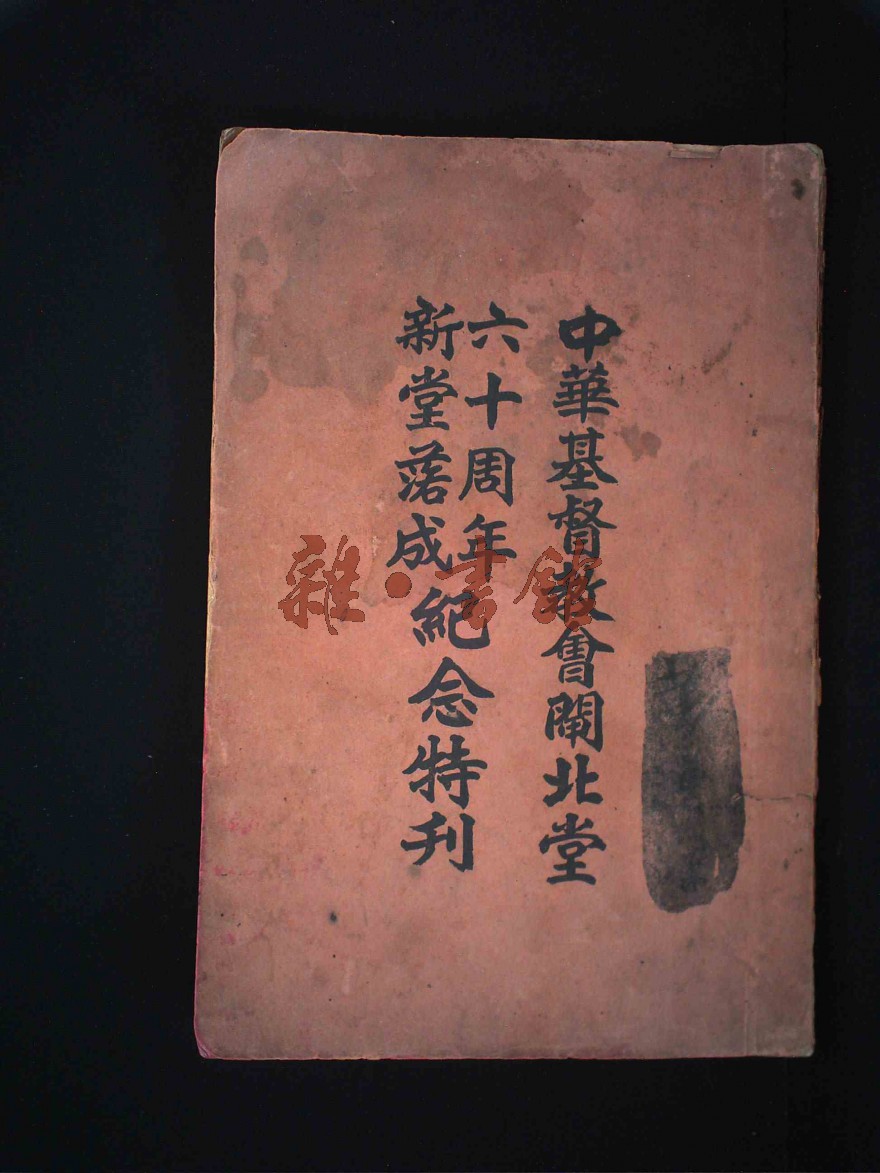 中華基督教會閘北堂
六十周年
新堂落成
紀念特刊
雜·書館